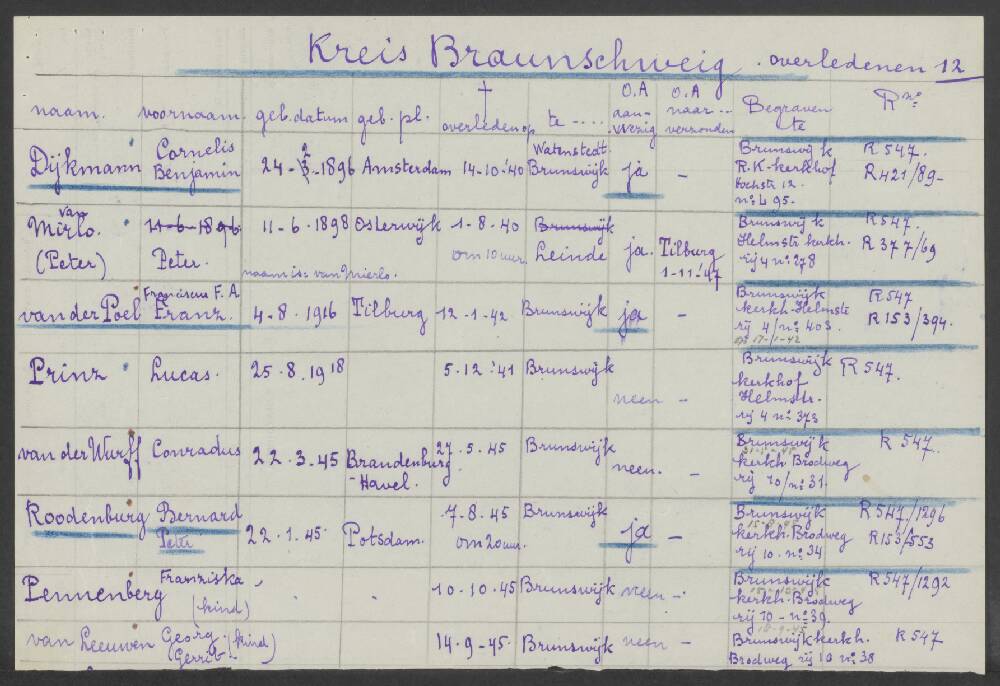 Kreis Braunschweig . overledenen 12
naam. voornaam. geb. datum geb. pl. † overleden op te ..... O.A aanwezig O.A naar... verzonden Begraven te R no.
Dijkmann Cornelis Benjamin 24-2-1896 Amsterdam 14-10-'40 Watenstedt. Brunswijk ja - Brunswijk R 547.
R.K-kerkhof R 421/89-
Hochstr 12.
no 495.
van Mirlo. 11-6-1896 11-6-1898 Osterwijk 1-8-40 Brunswijk Brunswijk R 547.
(Peter) Peter. om 10 uur Leinde ja. Tilburg 1-11-'47 Helmste kerkh. R 377/69
naam is: van Mierlo. rij 4 no 278
van der Poel Franciscus F. A. Franz. 4-8.1916 Tilburg 12-1-42 Brunswijk ja - Brunswijk R 547
kerkh-Helmste R 153/394.
rij 4/no 403.
17-1-42
Prinz Lucas. 25.8.1918 5.12.'41 Brunswijk neen - Brunswijk R 547.
kerkhof
Helmstr.
rij 4 no 373
van der Wurff Conradus 22.3.45 Brandenburg Havel. 27.5.45 Brunswijk neen. - Brunswijk R 547.
kerkh. Brodweg
rij 10/no 31.
Roodenburg Bernard 22.1.45. Potsdam. 7-8.45 om 20 uur. Brunswijk ja - Brunswijk R 547/1296
kerkh. Brodweg R 153/553
rij 10. no 34
Pennenberg Franziska (kind) 10-10-45 Brunswijk neen - Brunswijk R 547/1292
kerkh. Brodweg
rij 10 - no 39.
van Leeuwen Georg Gerrit (kind) 14-9-45. Brunswijk neen - Brunswijk kerkh. R 547
Brodweg rij 10 no 38